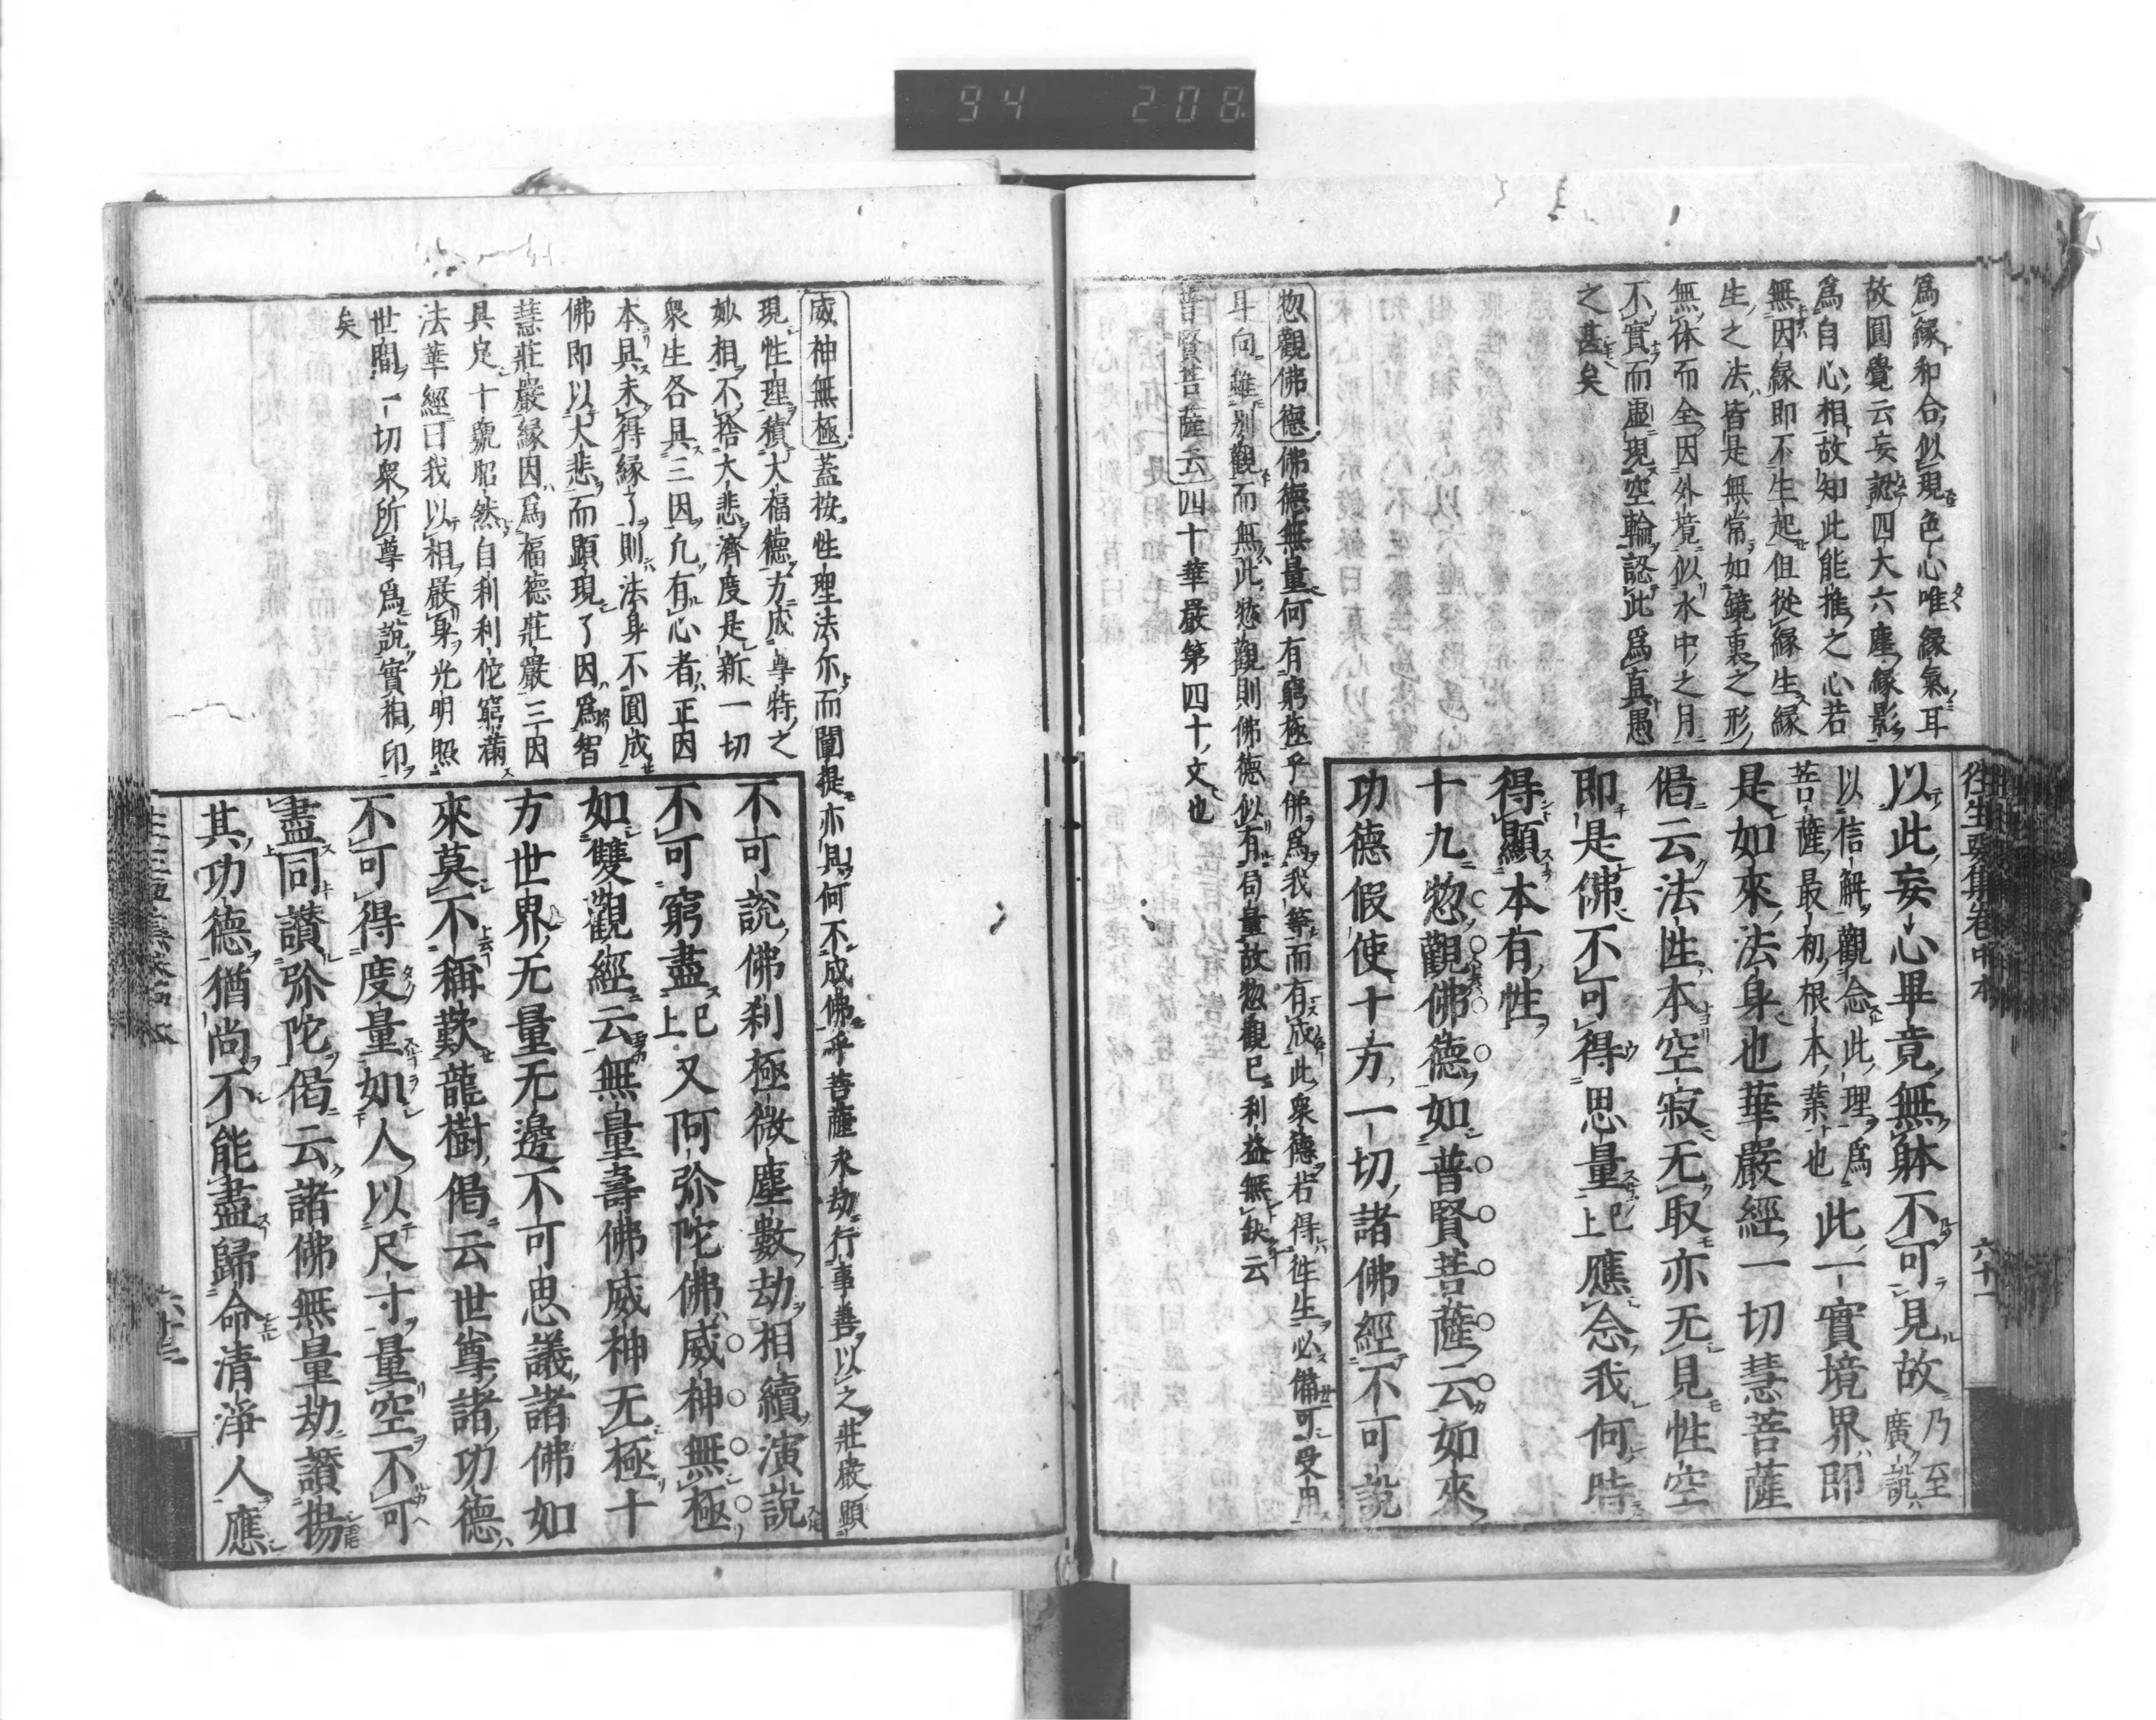 94 208
爲緣和合似現色心唯緣氣耳
故圓覺云妄認四大六塵緣影
爲自心相故知此能推之心若
無因緣即不生起但從緣生緣
生之法皆是無常如鏡裏之形
無体而全因外境似水中之月
不實而虛現空輪認此爲真愚
之甚矣
惣觀佛德 佛德無量何有窮極乎佛爲我等而有成此衆德若得往生必備可受用
斗向雖別觀而無此惣觀則佛德似有局量故惣觀已利益無缺云
普賢菩薩云 四十華嚴第四十文也
往生要集卷中本 六十一
以此妄心畢竟無躰不可見故 乃至廣說
以信解觀念此理爲
菩薩最初根本業也 此一實境界即
是如來法身也華嚴經一切慧菩薩
偈云法性本空寂无取亦无見性空
即是佛不可得思量 已上 應念我何時
得顯本有性
十九惣觀佛德如普賢菩薩云如來
功德假使十方一切諸佛經不可說
威神無極 蓋按性理法尓而闡提亦具何不成佛乎菩薩永劫行事善以之莊嚴顯
現性理積大福德方成尊特之
妙相不捨大悲濟度是新一切
衆生各具三因凢有心者正因
本具未得緣了則法身不圓成
佛即以大悲而顯現了因爲智
慧莊嚴緣因爲福德莊嚴三因
具足十號昭然自利利佗窮滿
法華經曰我以相嚴身光明照
世間一切衆所尊爲說實相印
矣
不可說佛刹極微塵數劫相續演說
不可窮盡 已上 又阿弥陀佛威神無極
如雙觀經云無量壽佛威神无極十
方世界无量无邊不可思議諸佛如
來莫不稱歎龍樹偈云世尊諸功德
不可得度量如人以尺寸量空不可
盡同讚弥陀偈云諸佛無量劫讚揚
其功德猶尚不能盡歸命清淨人應